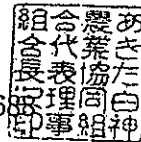 あきた白神
農業協同組
合代表理事
組合長之印